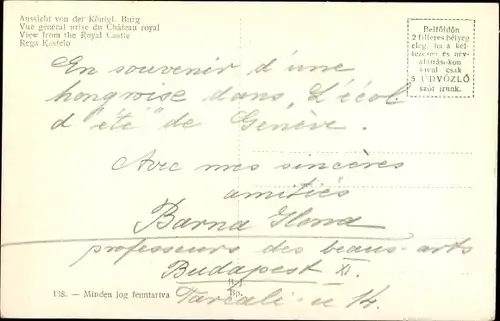 Aussicht von der Königl. Burg
Vue général prise du Château royal
View from the Royal Castle
Rega Kastelo
Belföldön
2 filléres bélyeg
elég, ha a kel-
tezésen és név-
aláíráson kon
kívül csak
5 ÜDVÖZLŐ
szót írunk.
En souvenir d'une
hongroise dans „L'écol
d'"été" de Genève.
Avec mes sincères
amitiés
Barna Ilona
professeurs des beaux-arts
Budapest XI.
Tarcali-u 14.
138. — Minden jog fenntartva
Bp.